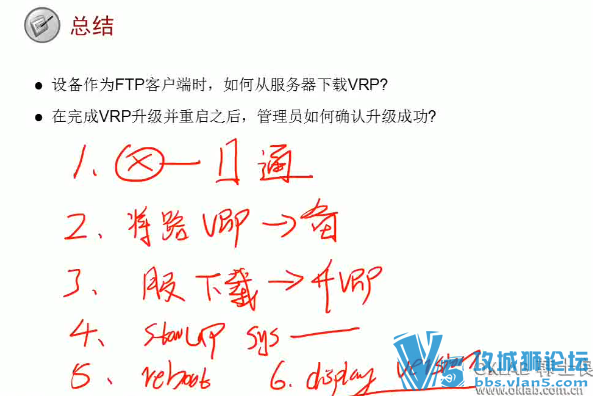 总结
设备作为FTP客户端时，如何从服务器下载VRP?
在完成VRP升级并重启之后，管理员如何确认升级成功?
1、 通
2、将路 VRP → 备
3、服 下载 → 升VRP
4、startup sys
5、reboot 6. display version
攻城狮论坛
bbs.vlan5.com
www.oklab.com